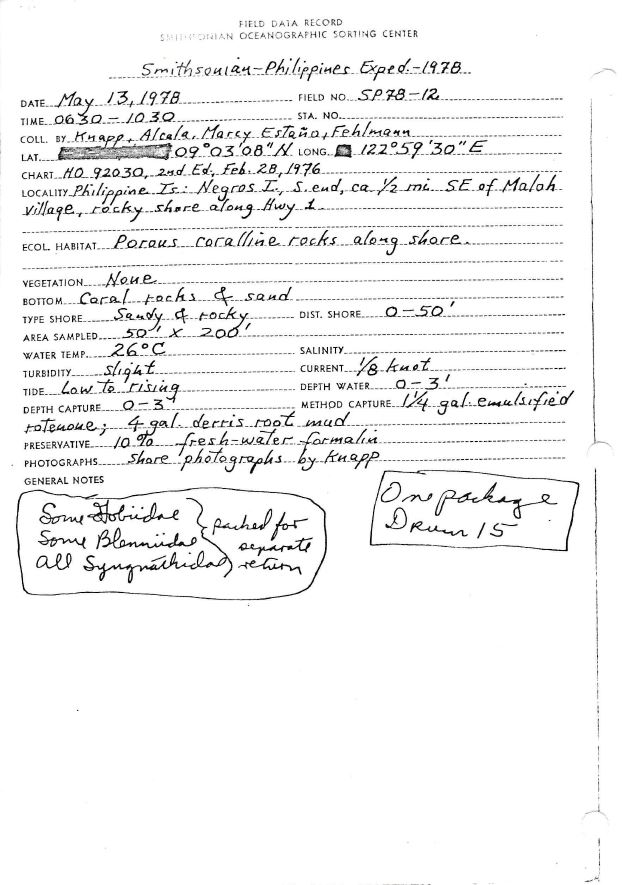 FIELD DATA RECORD
SMITHSONIAN OCEANOGRAPHIC SORTING CENTER
Smithsonian-Philippines Exped.-1978
DATE May 13, 1978 FIELD NO. SP78-12
TIME 0630-1030 STA. NO.
COLL. BY Knapp, Alcala, Marcy Estaño, Fehlmann
LAT. 09°03'08"N LONG. 122°59'30"E
CHART HO 92030, 2nd Ed, Feb. 28, 1976
LOCALITY Philippine Is: Negros I., S. end, ca 1/2 mi. SE of Maloh
Village, rocky shore along Hwy 1
ECOL. HABITAT Porous coralline rocks along shore.
VEGETATION None
BOTTOM Coral rocks & sand
TYPE SHORE Sandy & rocky DIST. SHORE 0-50'
AREA SAMPLED 50' X 200'
WATER TEMP. 26°C SALINITY
TURBIDITY slight CURRENT 1/8 knot
TIDE Low to rising DEPTH WATER 0-3'
DEPTH CAPTURE 0-3' METHOD CAPTURE 1 1/4 gal. emulsified
rotenone; 4 gal. derris root mud
PRESERVATIVE 10% fresh-water formalin
PHOTOGRAPHS Shore photographs by Knapp
GENERAL NOTES
Some Gobiidae
Some Blenniidae
all Syngnathidae
packed for
separate
return
One package
Drum 15